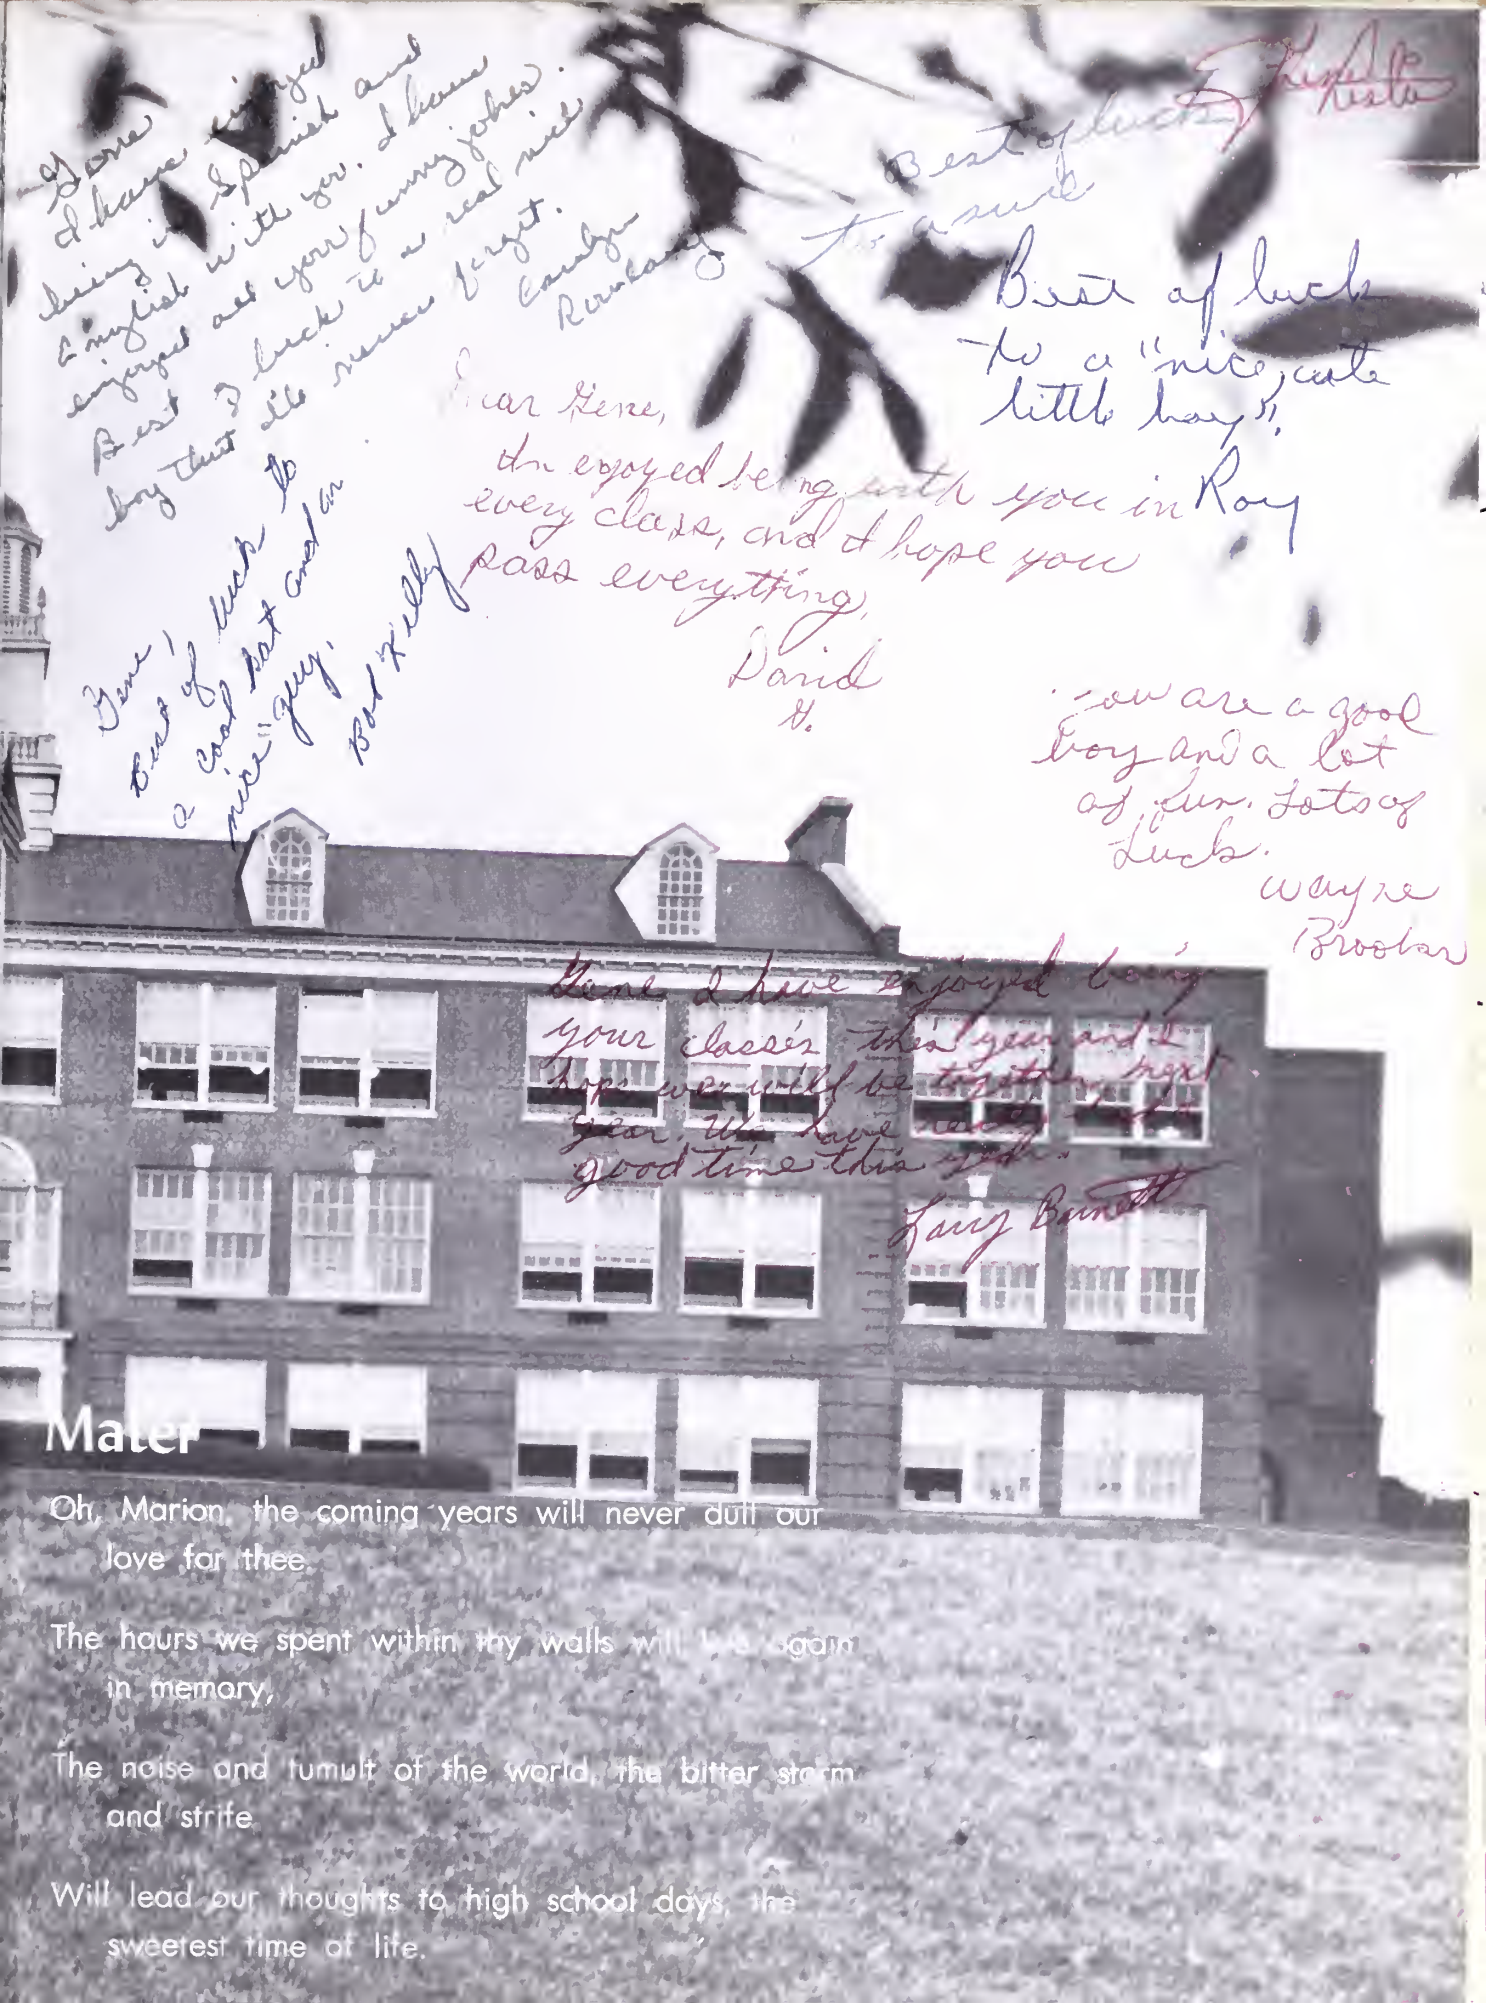 Gene
I have enjoyed
being in Spanish and
English with you. I have
enjoyed all your funny jokes.
Best of luck to a real nice
boy that I'll never forget.
Carolyn
Best of luck
to a
Best of luck
to a "nice, cute
little boy".
Roy
Dear Gene,
I'v enjoyed being with you in
every class, and I hope you
pass everything,
David
G.
Gene,
Best of luck to
a cool kat and an
"nice" guy.
Bob Kelly
You are a good
boy and a lot
of fun. Lots of
Luck.
Wayne
Gene I have enjoyed being
your classes this year and I
hope we will be together next
year. We have really had a
good time this year.
Larry Barnett
Mater
Oh, Marion, the coming years will never dull our
love for thee.
The hours we spent within thy walls will live again
in memory,
The noise and tumult of the world, the bitter storm
and strife
Will lead our thoughts to high school days, the
sweetest time of life.